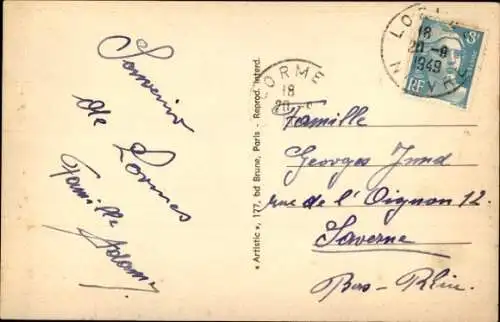 Souvenir
de Lormes
Famille Adam
« Artistic », 177, bd Brune, Paris - Reprod. interd.
LORME
18
20 -8
LOR
18
20 -8
1949
NIÈVRE
8F
RF
Famille
Georges Jund
rue de l'Oignon 12
Saverne
Bas-Rhin.